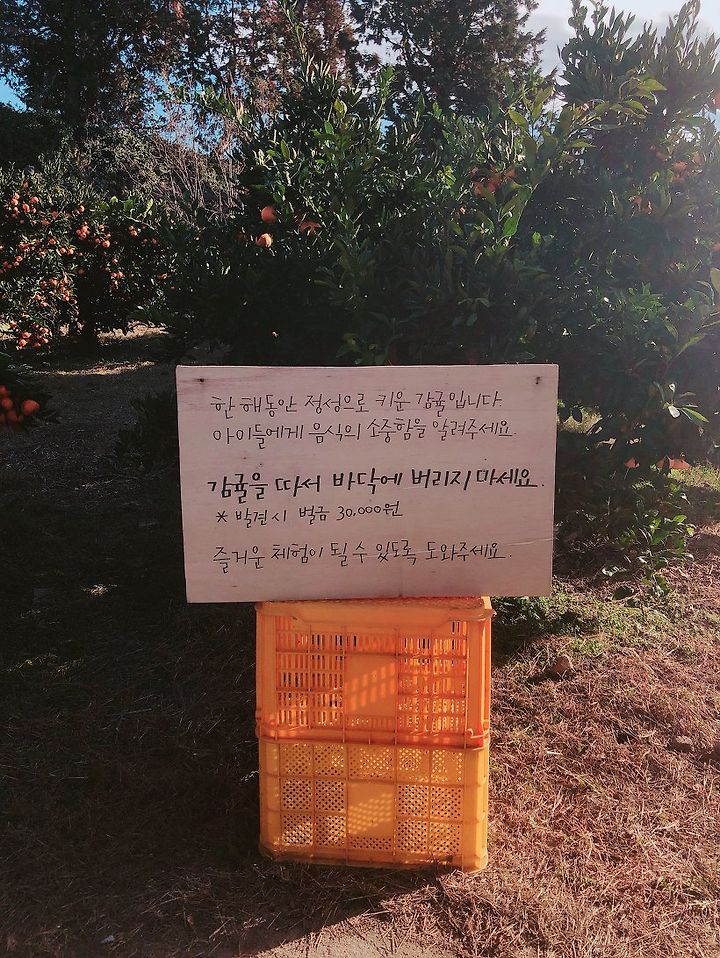 한 해동안 정성으로 키운 감귤입니다.
아이들에게 음식의 소중함을 알려주세요.
감귤을 따서 바닥에 버리지 마세요.
* 발견시 벌금 30,000원
즐거운 체험이 될 수 있도록 도와주세요.